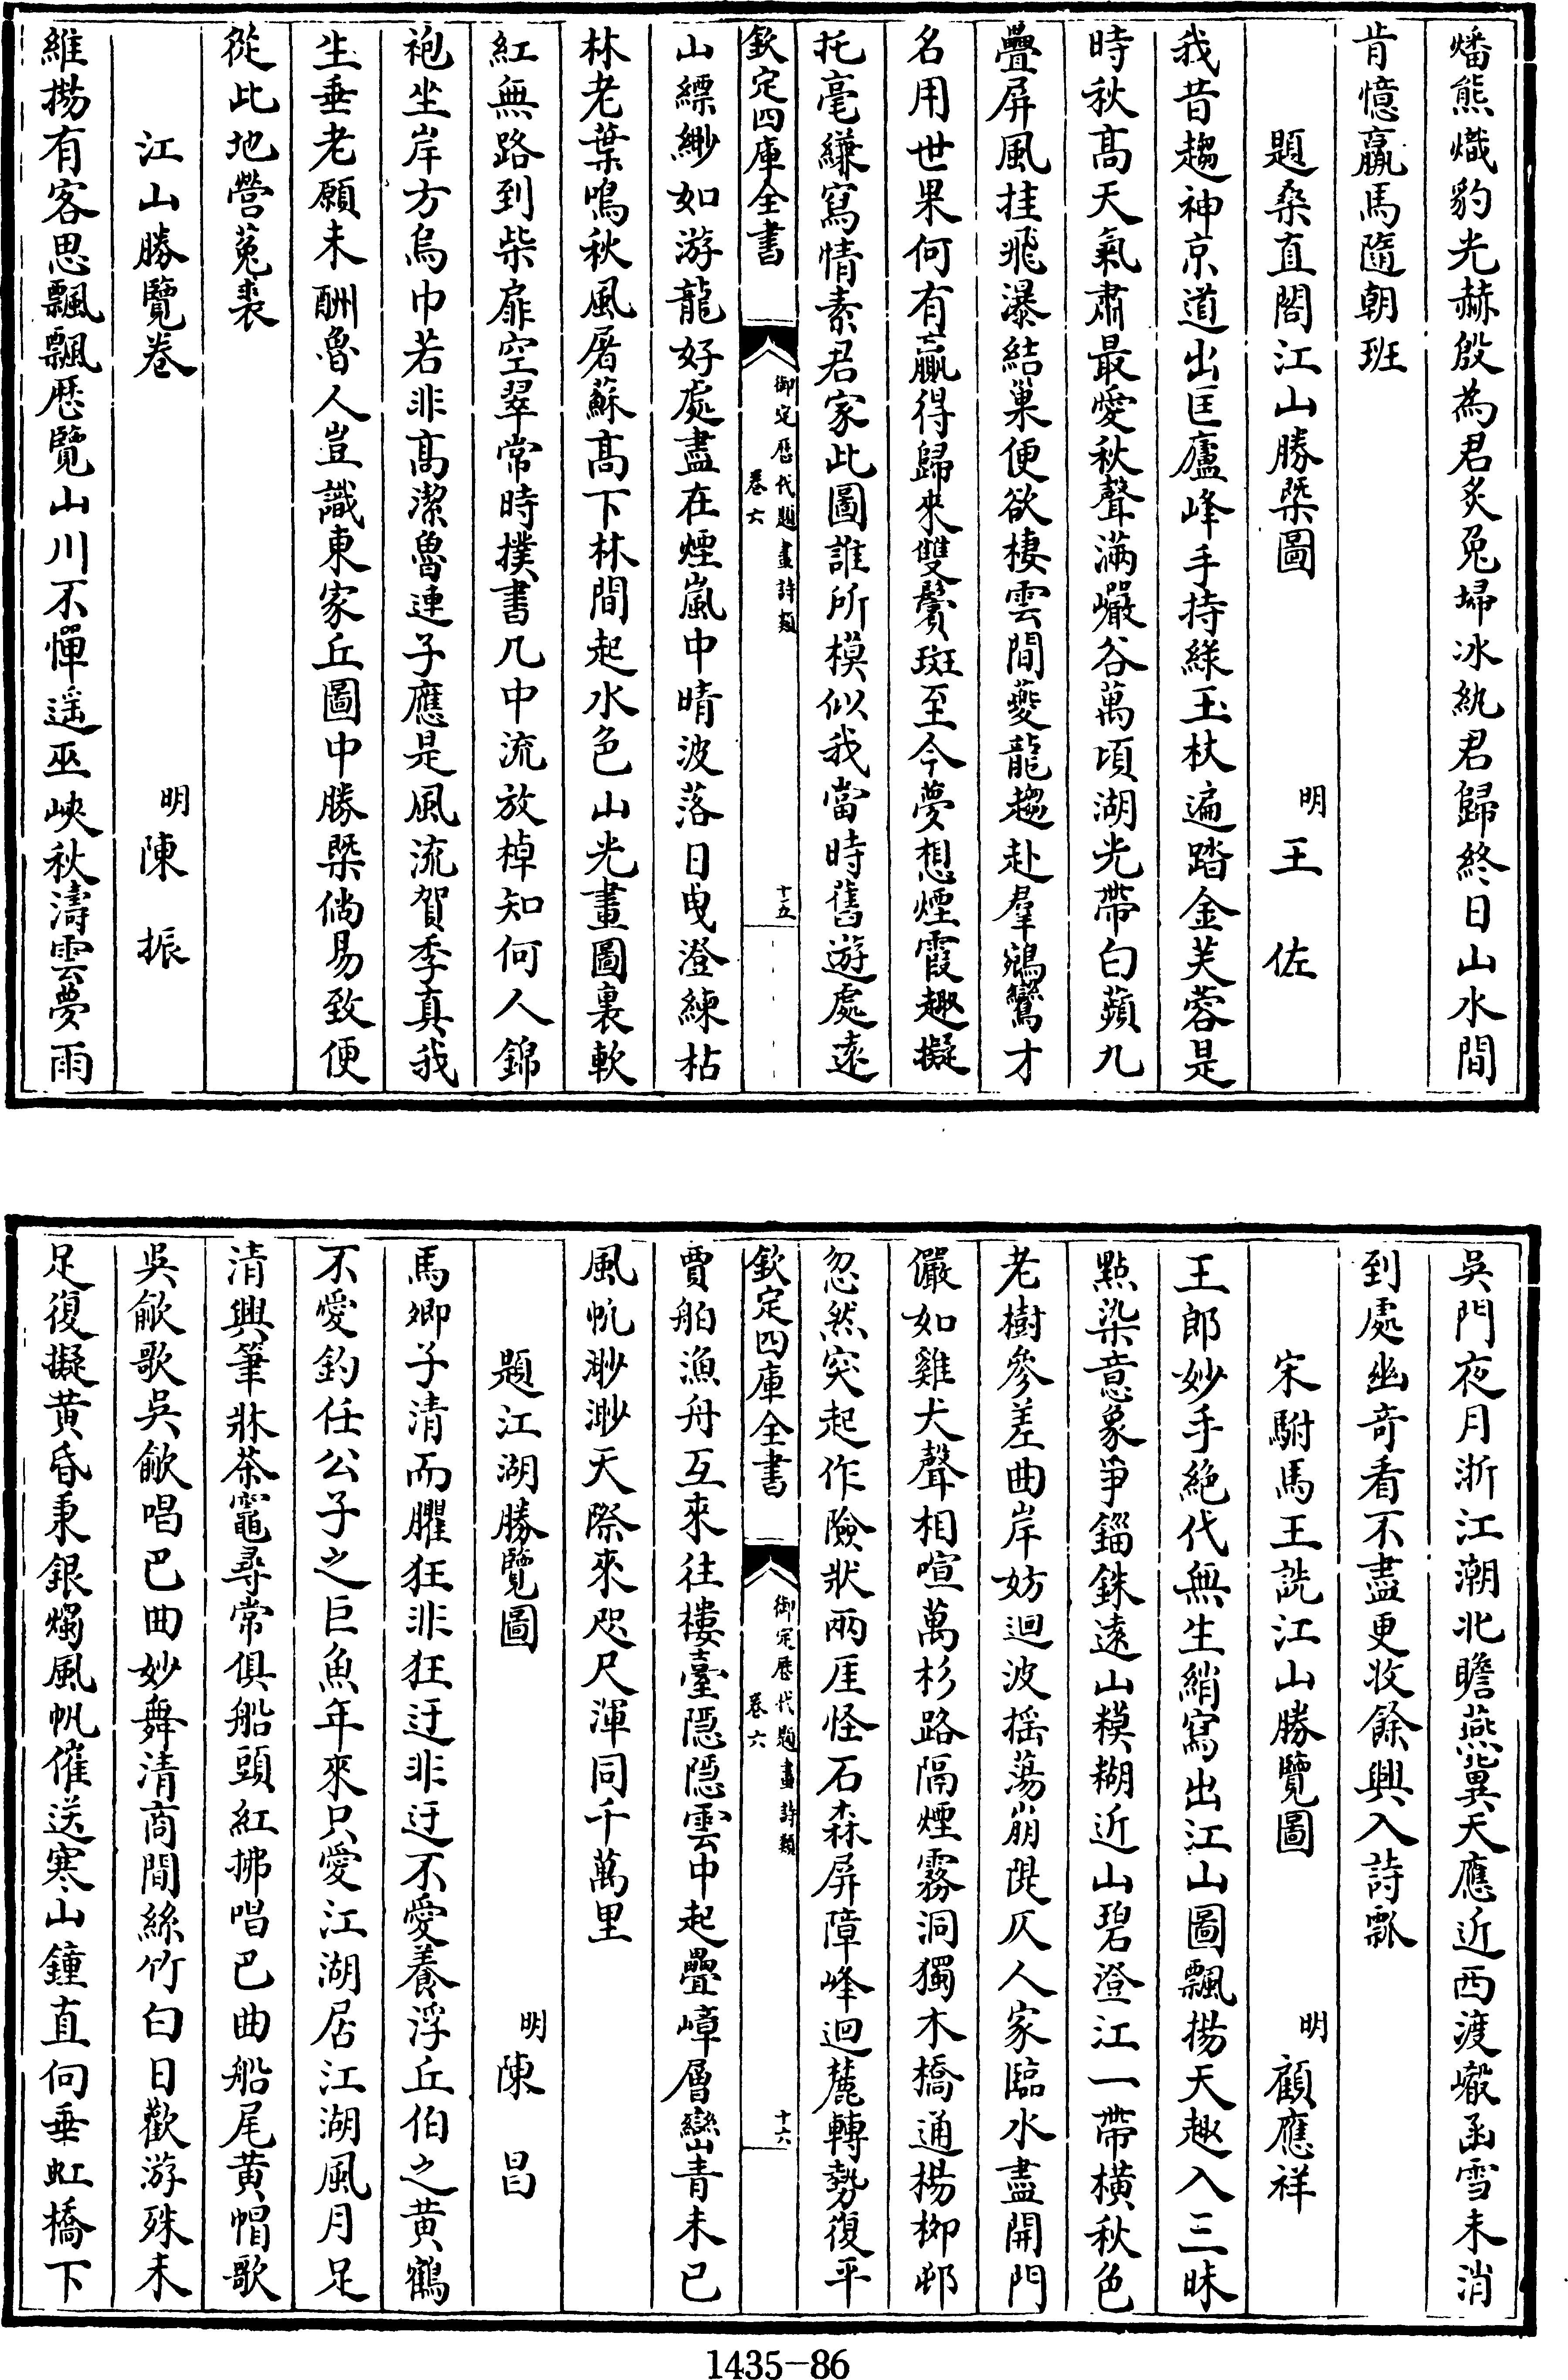 燔熊熾豹光赫殷為君炙兔埽冰紈君歸終日山水間
肯憶羸馬隨朝班
題桑直閣江山勝槩圖
明王佐
我昔趨神京道出匡廬峰手持綠玉杖遍踏金芙蓉是
時秋髙天氣肅最愛秋聲滿巖谷萬頃湖光帶白蘋九
疊屏風挂飛瀑結巢便欲棲雲間夔龍趨赴羣鵷鸞才
名用世果何有贏得歸來雙鬢斑至今夢想煙霞趣擬
托毫縑寫情素君家此圖誰所模似我當時舊遊處遠
欽定四庫全書
御定歷代題畫詩類
卷六
十五
山縹緲如游龍好處盡在煙嵐中晴波落日曳澄練枯
林老葉鳴秋風屠蘇髙下林間起水色山光畫圖裏軟
紅無路到柴扉空翠常時撲書几中流放棹知何人錦
袍坐岸方烏巾若非髙潔魯連子應是風流賀季真我
生垂老願未酬魯人豈識東家丘圖中勝槩倘易致便
從此地營菟裘
江山勝覽卷
明陳振
維揚有客思飄飄歷覽山川不憚遥巫峽秋濤雲夢雨
吳門夜月浙江潮北瞻燕冀天應近西渡崤函雪未消
到處幽奇看不盡更收餘興入詩瓢
宋駙馬王詵江山勝覽圖
明顧應祥
王郎妙手絶代無生綃寫出江山圖飄揚天趣入三昧
點染意象爭錙銖遠山糢糊近山碧澄江一帶橫秋色
老樹參差曲岸妨迴波揺蕩崩隄仄人家臨水盡開門
儼如雞犬聲相喧萬杉路隔煙霧洞獨木橋通楊柳邨
忽然突起作險狀兩厓怪石森屏障峰迴麓轉勢復平
欽定四庫全書
御定歷代題畫詩類
卷六
十六
賈舶漁舟互來往樓臺隱隱雲中起疊嶂層巒青未已
風帆渺渺天際來咫尺渾同千萬里
題江湖勝覽圖
明陳昌
馬卿子清而臞狂非狂迂非迂不愛養浮丘伯之黄鶴
不愛釣任公子之巨魚年來只愛江湖居江湖風月足
清興筆牀茶竈尋常俱船頭紅拂唱巴曲船尾黄帽歌
吳歈歌吳歈唱巴曲妙舞清商間絲竹白日歡游殊未
足復擬黄昏秉銀燭風帆催送寒山鐘直向垂虹橋下
1435-86